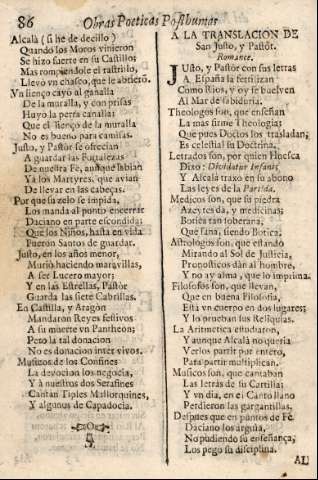 86 Obras Poeticas Posthumas
Alcalà (si he de decillo)
Quando los Moros vinieron
Se hizo fuerte en su Castillo;
Mas rompiendole el rastrillo,
Llevò vn chasco, que le abrierõ.
Vn lienço cayò al ganalla
De la muralla, y con prisas
Huyo la perra canalla;
Que el lienço de la muralla
No es bueno para camisas.
Justo, y Pastòr se ofrecian
A guardar las Fortalezas
De nuestra Fè, aunque sabian
Yà los Martyres, que avian
De llevar en las cabeças.
Por que su zelo se impida,
Los manda al punto encerrar
Daciano en parte escondida;
Que los Niños, hasta en vida
Fueron Santos de guardar.
Justo, en los años menor,
Muriò haciendo maravillas,
A ser Lucero mayor;
Y en las Estrellas, Pastòr
Guarda las siete Cabrillas.
En Castilla, y Aragòn
Mandaron Reyes festivos
A su muerte vn Pantheon;
Pero la tal donacion
No es donacion inter vivos.
Musicos de los Confines
La devocion los negocia,
Y à nuestros dos Serafines
Cantan Tiples Mallorquines,
Y algunos de Capadocia.
A LA TRANSLACION DE
San Justo, y Pastòr.
Romance.
JUsto, y Pastòr con sus letras
A España la fertilizan
Como Rios, y oy se buelven
Al Mar de sabiduria.
Theologos son, que enseñan
La mas firme Theologia;
Que pues Doctos los trasladan,
Es celestial su Doctrina.
Letrados son, por quien Huesca
Dixo: Dividatur infans;
Y Alcalà traxo en su abono
Las leyes de la Partida.
Medicos son, que su piedra
Azeytes dà, y medicinas;
Botica tan toberana,
Que sana, siendo Botica.
Astrologos son, que estando
Mirando al Sol de Justicia,
Pronosticos dàn al hombre,
Y no ay alma, que lo imprima.
Filosofos son, que llevan,
Que en buena Filosofia,
Està vn cuerpo en dos lugares;
Y lo prueban sus Reliquias.
La Aritmetica estudiaron,
Y aunque Alcalà no queria
Verlos partir por entero,
Para partir multiplican.
Musicos son, que cantaban
Las letras de su Cartilla;
Y vn dia, en el Canto llano
Perdieron las gargantillas.
Despues que en puntos de Fè.
Daciano los argùa,
No pudiendo su enseñança,
Los pego su disciplina.
AL